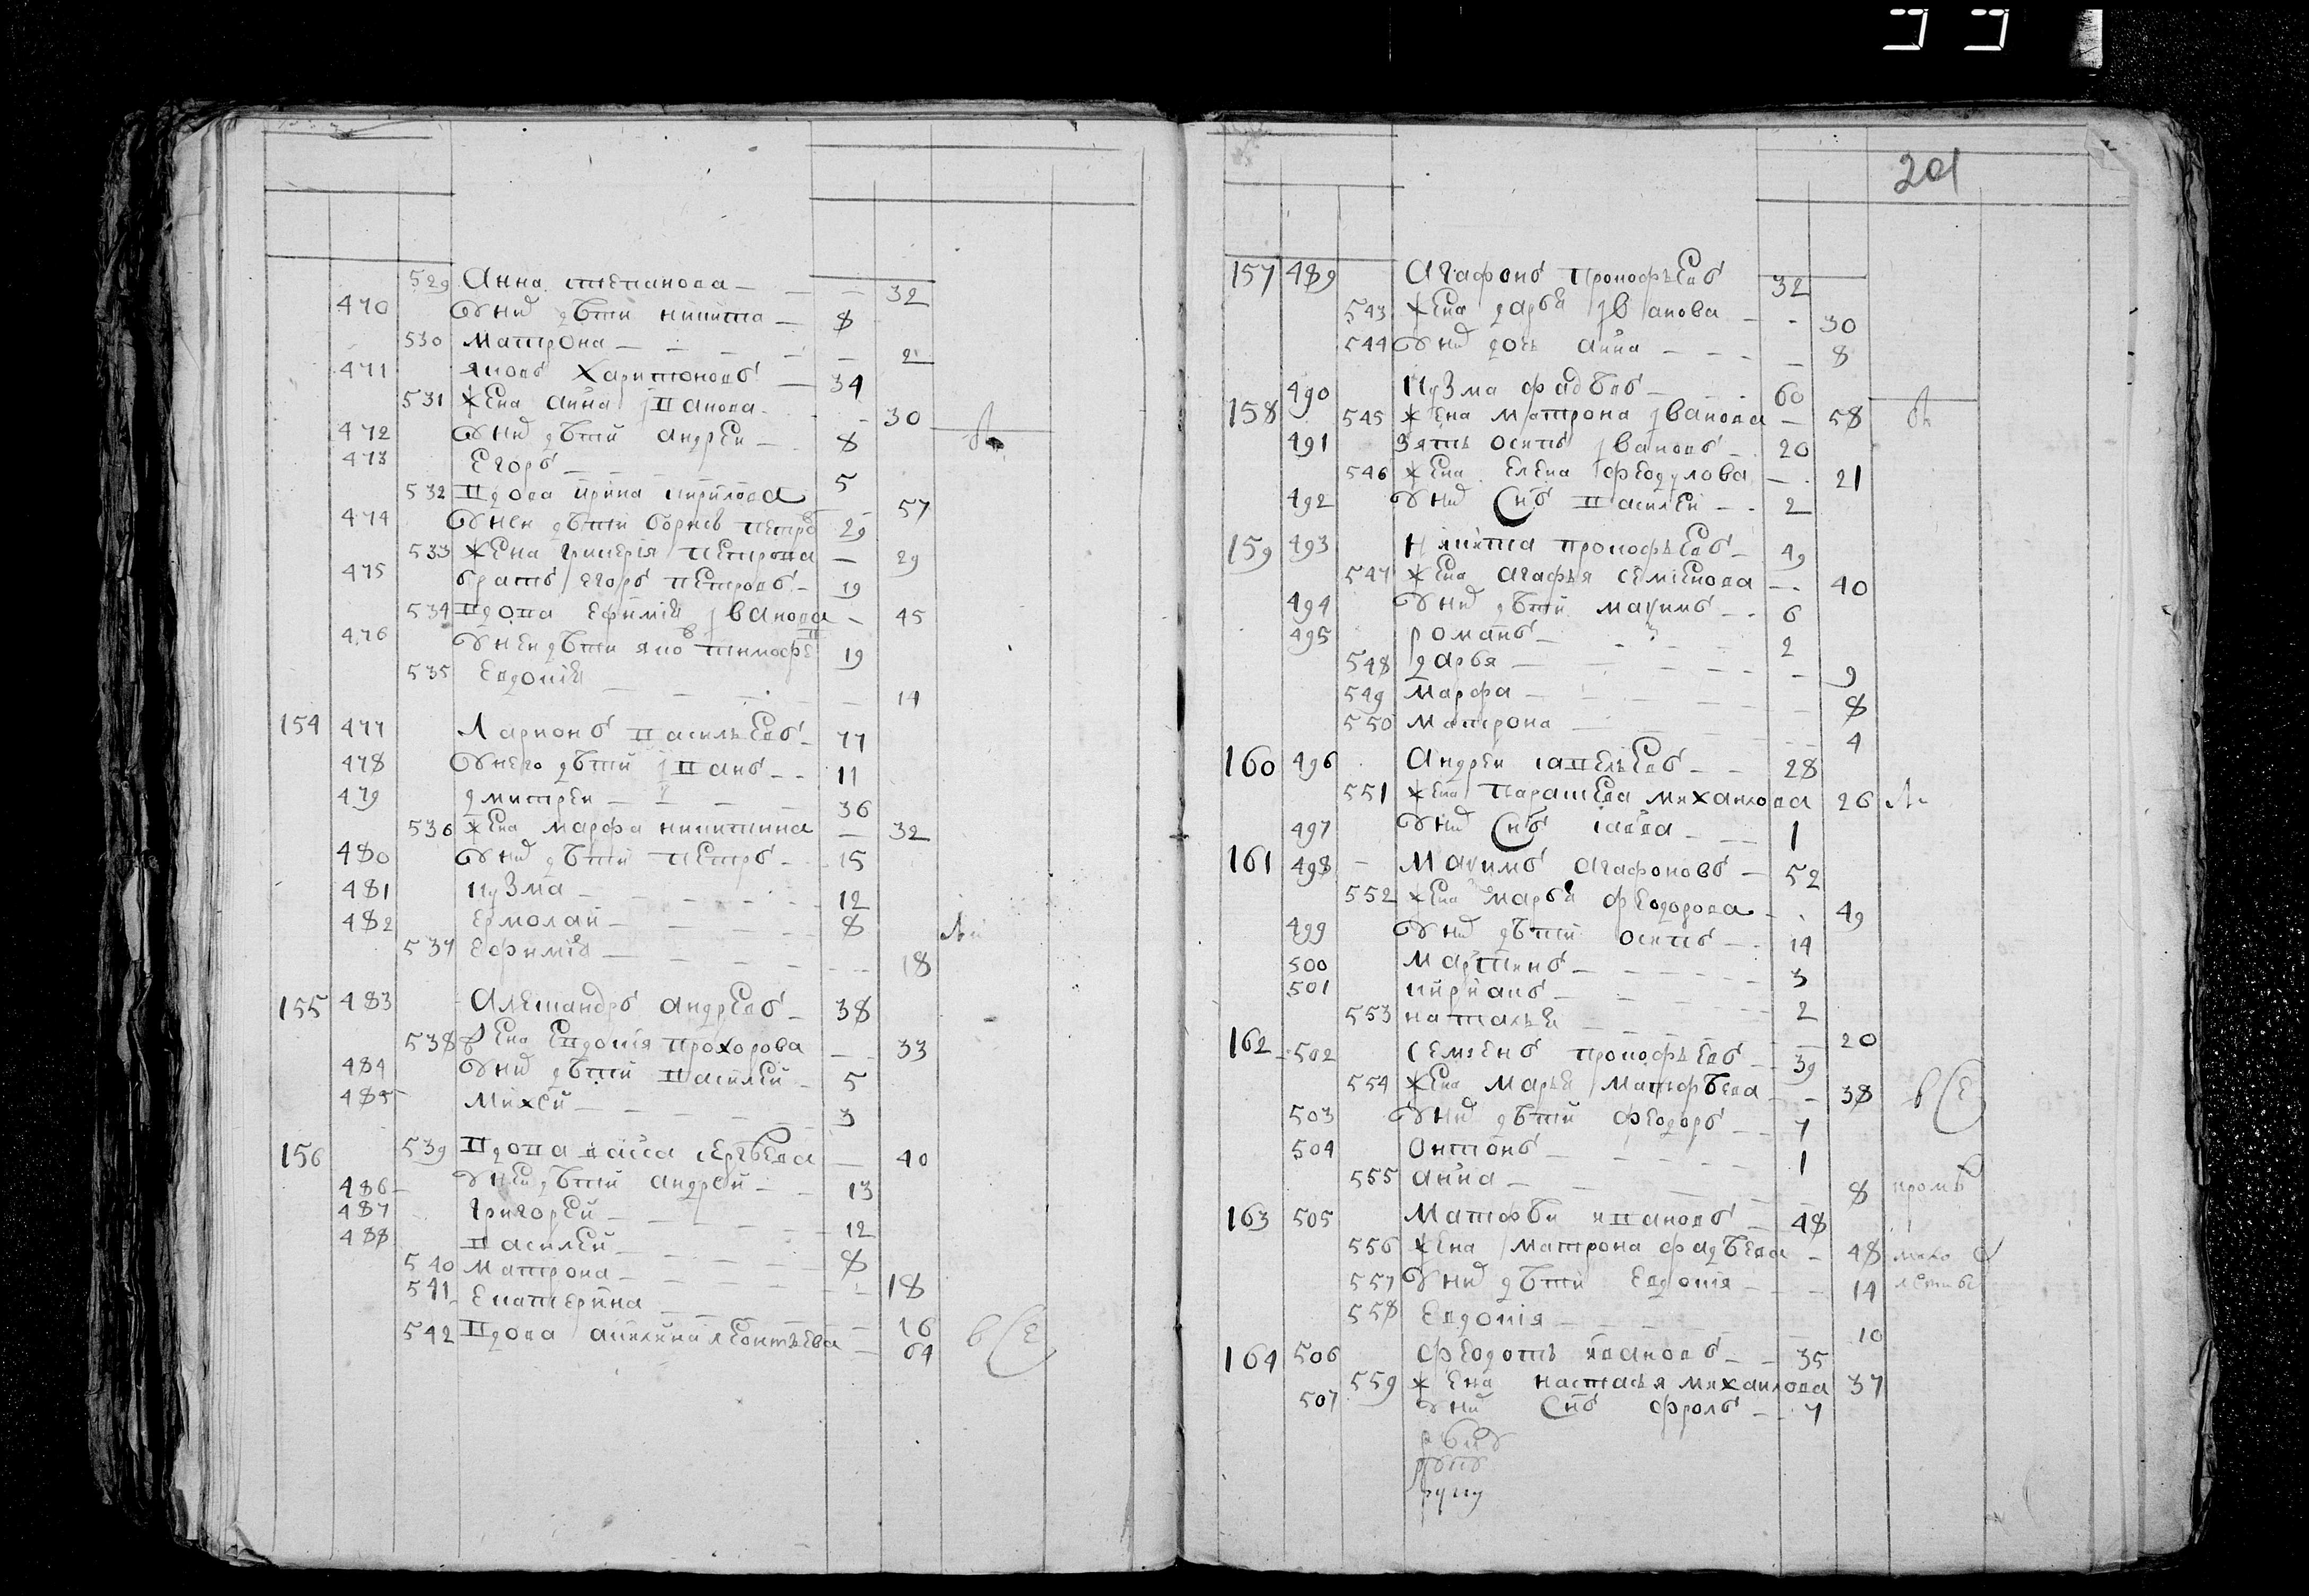 529 Анна степанова — 32
470 У них дѣти никита — 8
530 Матрона — 2
471 яковъ Харитоновъ — 34
531 жена анна јванова — 30
472 У них дѣти андрей — 8
473 Егоръ — 5
532 вдова ирина кирилова 57
474 У неи дѣти борисъ петро 29
533 жена гликерія петрова — 29
475 братъ егоръ петровъ — 19
534 вдова ефимія јванова — 45
476 У неи дѣти яко тимофе 19
535 Евдокія — 14
154 477 Ларионъ васильевъ — 77
478 У него дѣти јванъ — 11
479 дмитреи — 36
536 жена марфа никитина — 32
480 У них дѣти петръ — 15
481 кузма — 12
482 ермолаи — 8
537 ефимія — 18
155 483 Александръ андреевъ — 38
538 жена Евдокія прохорова — 33
484 У них дѣти василеи — 5
485 Михеи — 3
156 539 вдова васса сергѣева — 40
486 У неи дѣти андреи — 13
487 григореи — 12
488 василеи — 8
540 Матрона — 18
541 екатерина — 16
542 вдова акилина леонтьева — 64
все
201
157 489 Агафонъ прокофьевъ 32
543 жена дарья јванова — 30
544 У них дочь анна — 8
158 490 кузма фадѣевъ — 60
545 жена матрона јванова — 58
491 зять осипъ јвановъ — 20
546 жена елена феодулова — 21
492 У них Снъ василеи — 2
159 493 Никита прокофьевъ — 49
547 жена агафья семіенова — 40
494 У них дѣти максимъ — 6
495 романъ — 2
548 дарья — 9
549 марфа — 8
550 матрона — 4
160 496 Андреи савельевъ — 28
551 жена парасковья михаилова 26
497 У них Снъ савва — 1
161 498 Максимъ агафоновъ — 52
552 жена марья феодорова — 49
499 У них дѣти осипъ — 14
500 мартинъ — 3
501 кирианъ — 2
553 наталья — 20
162 502 семіенъ прокофьевъ — 39
554 жена марья матфѣева — 38 все
503 У них дѣти феодоръ — 7
504 Онтонъ — 1
555 анна — 8 кромѣ
163 505 Матфѣи ивановъ — 48
556 жена матрона фадѣева — 48
557 У них дѣти Евдокія — 14
558 Евдокія — 10
164 506 феодотъ ивановъ — 35
559 жена настасья михаилова 37
507 У них Снъ фролъ — 7
руку